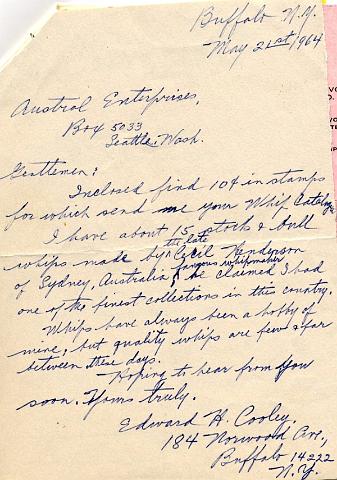 Buffalo N.Y.
May 21st/1964
Austral Enterprises,
Box 5033
Seattle, Wash.
Gentlemen:
Inclosed find 10¢ in stamps
for which send me your Whip Catalog.
I have about 15 stock & bull
whips made by the late Cecil Henderson
of Sydney, Australia, famous whipmaker, he claimed I had
one of the finest collections in this country.
Whips have always been a hobby of
mine, but quality whips are few & far
between these days.
Hoping to hear from you
soon. Yours truly.
Edward H. Cooley.
184 Norwood Ave.,
Buffalo 14222
N.Y.